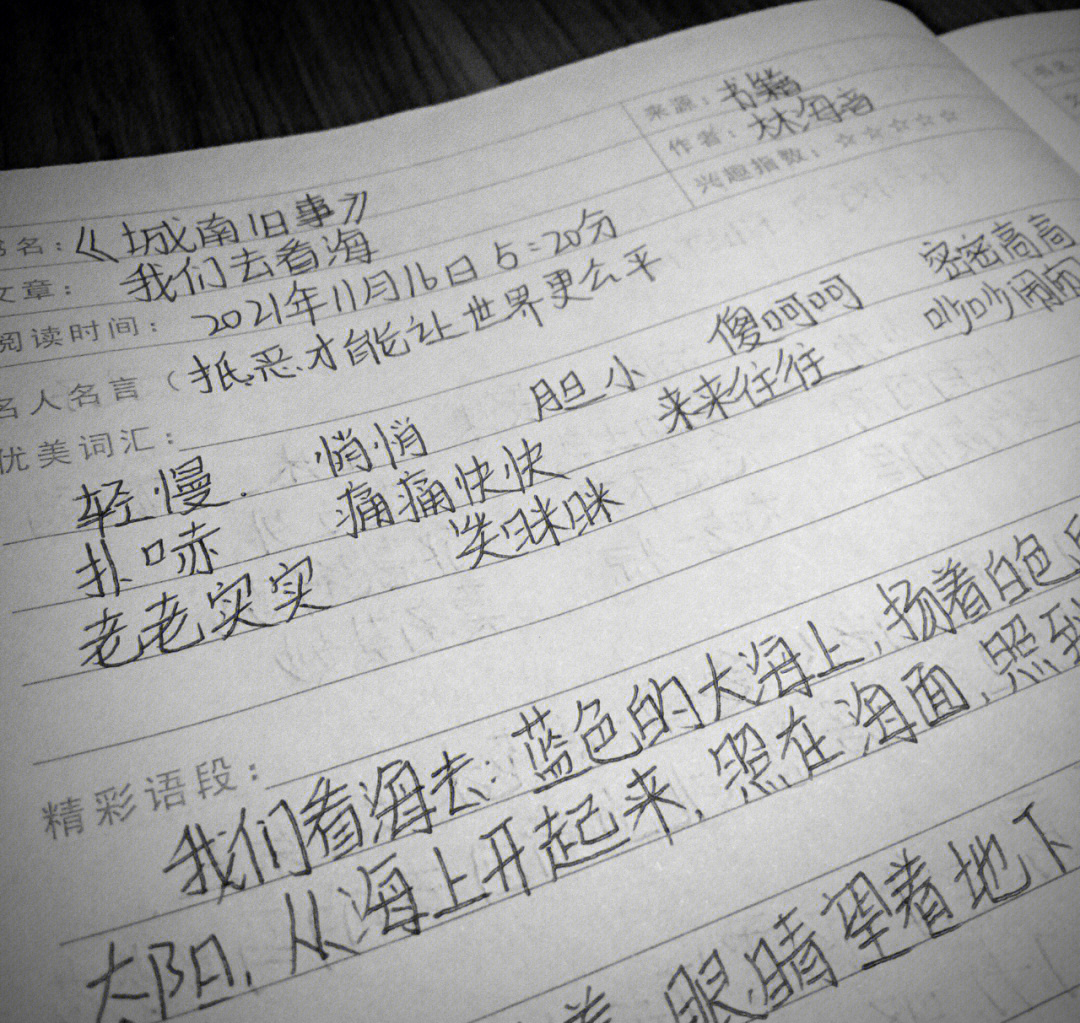 来源：书籍
作者：林海音
兴趣指数：☆☆☆☆☆
书名：《城南旧事》
文章：我们去看海
阅读时间：2021年11月16日 5:20分
名人名言（抵恶才能让世界更公平
优美词汇：
轻慢. 悄悄 胆小 傻呵呵 密密高高
扑哧 痛痛快快 来来往往 吵吵闹闹
老老实实 笑眯眯
精彩语段：
我们看海去.蓝色的大海上,扬着白色
太阳,从海上升起来,照在海面,照到
眼睛望着地下